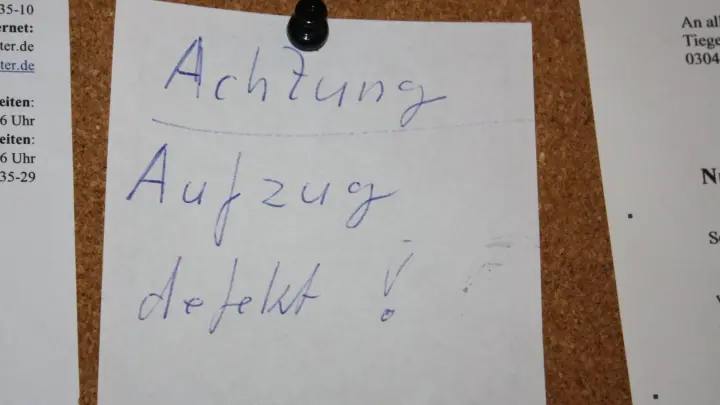 35-10
ernet:
ter.de
ter.de
eiten:
6 Uhr
eiten:
6 Uhr
35-29
Achtung
Aufzug
defekt !
An al
Tiege
0304